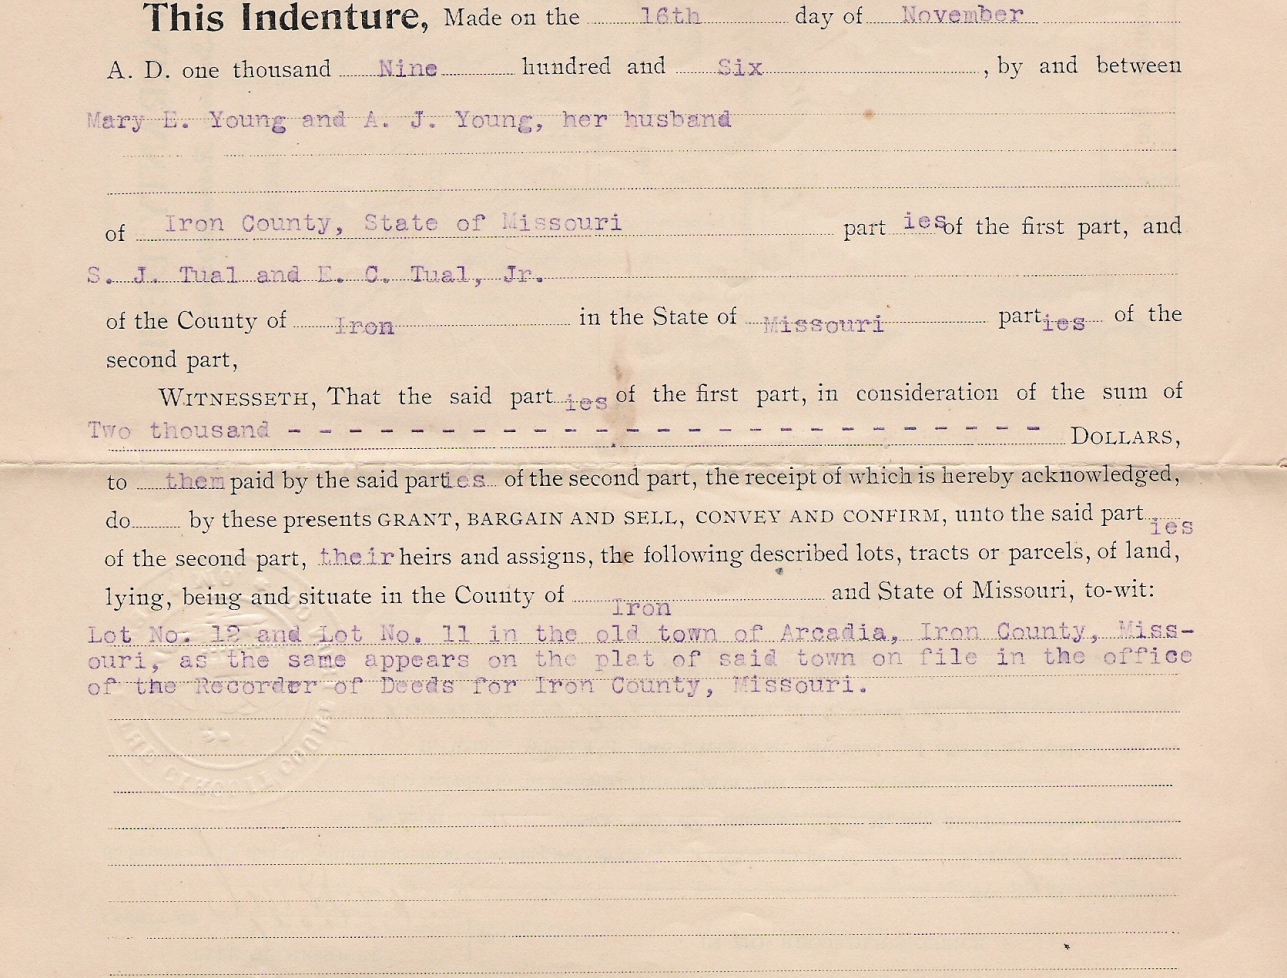 This Indenture, Made on the 16th day of November
A. D. one thousand Nine hundred and Six , by and between
Mary E. Young and A. J. Young, her husband
of Iron County, State of Missouri part ies of the first part, and
S. J. Tual and E. C. Tual, Jr.
of the County of Iron in the State of Missouri parties of the
second part,
WITNESSETH, That the said part ies of the first part, in consideration of the sum of
Two thousand - - - - - - - - - - - - - - - - - - - - - - - - - DOLLARS,
to them paid by the said parties of the second part, the receipt of which is hereby acknowledged,
do by these presents GRANT, BARGAIN AND SELL, CONVEY AND CONFIRM, unto the said part ies
of the second part, their heirs and assigns, the following described lots, tracts or parcels, of land,
lying, being and situate in the County of Iron and State of Missouri, to-wit:
Lot No. 12 and Lot No. 11 in the old town of Arcadia, Iron County, Miss-
ouri, as the same appears on the plat of said town on file in the office
of the Recorder of Deeds for Iron County, Missouri.